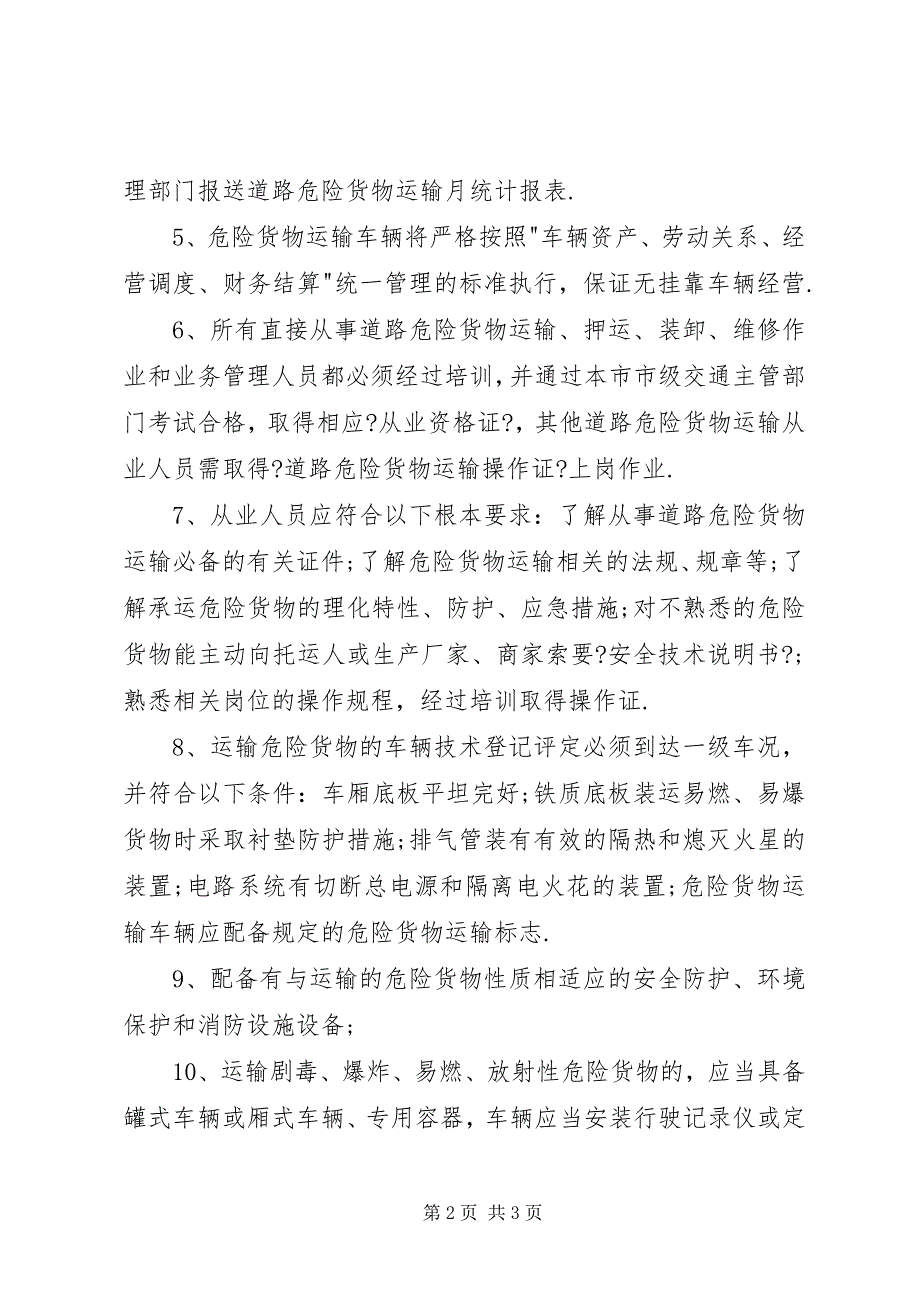 理部门报送道路危险货物运输月统计报表.
5、危险货物运输车辆将严格按照"车辆资产、劳动关系、经
营调度、财务结算"统一管理的标准执行，保证无挂靠车辆经营.
6、所有直接从事道路危险货物运输、押运、装卸、维修作
业和业务管理人员都必须经过培训,并通过本市市级交通主管部
门考试合格，取得相应?从业资格证?，其他道路危险货物运输从
业人员需取得?道路危险货物运输操作证?上岗作业.
7、从业人员应符合以下根本要求：了解从事道路危险货物
运输必备的有关证件;了解危险货物运输相关的法规、规章等;了
解承运危险货物的理化特性、防护、应急措施;对不熟悉的危险
货物能主动向托运人或生产厂家、商家索要?安全技术说明书?;
熟悉相关岗位的操作规程，经过培训取得操作证.
8、运输危险货物的车辆技术登记评定必须到达一级车况，
并符合以下条件：车厢底板平坦完好;铁质底板装运易燃、易爆
货物时采取衬垫防护措施;排气管装有有效的隔热和熄灭火星的
装置;电路系统有切断总电源和隔离电火花的装置;危险货物运
输车辆应配备规定的危险货物运输标志.
9、配备有与运输的危险货物性质相适应的安全防护、环境
保护和消防设施设备;
10、运输剧毒、爆炸、易燃、放射性危险货物的，应当具备
罐式车辆或厢式车辆、专用容器，车辆应当安装行驶记录仪或定
第 2 页 共 3 页